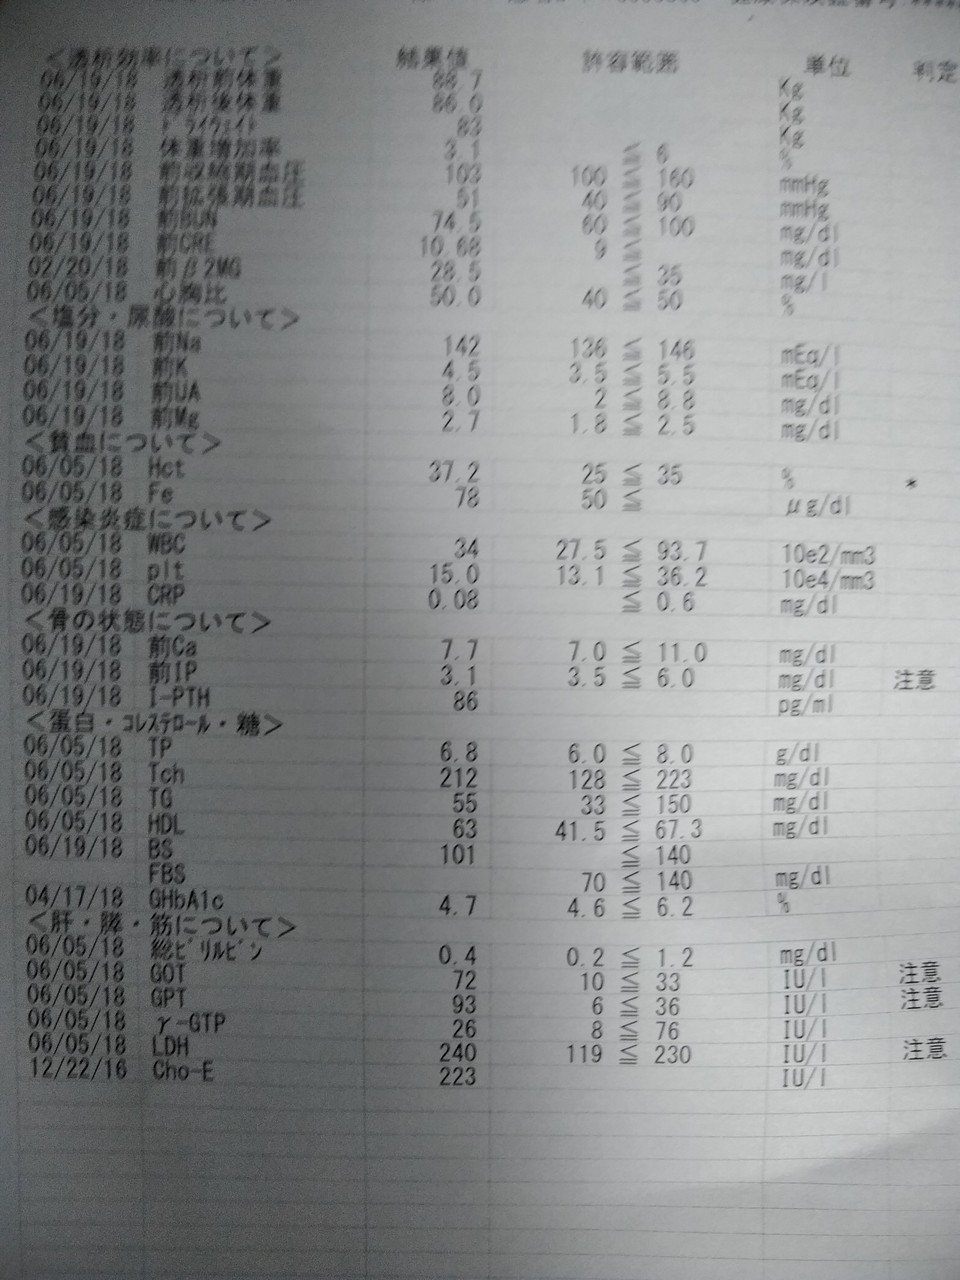 ＜透析効率について＞ 結果値 許容範囲 単位 判定
06/19/18 透析前体重 88.7 Kg
06/19/18 透析後体重 86.0 Kg
06/19/18 ﾄﾞﾗｲｳｪｲﾄ 83 Kg
06/19/18 体重増加率 3.1 ≦ 6 %
06/19/18 前収縮期血圧 103 100 ≦ 160 mmHg
06/19/18 前拡張期血圧 51 40 ≦ 90 mmHg
06/19/18 前BUN 74.5 60 ≦ 100 mg/dl
06/19/18 前CRE 10.68 9 ≦ mg/dl
02/20/18 前β2MG 28.5 ≦ 35 mg/l
06/05/18 心胸比 50.0 40 ≦ 50 %
＜塩分・尿酸について＞
06/19/18 前Na 142 136 ≦ 146 mEq/l
06/19/18 前K 4.5 3.5 ≦ 5.5 mEq/l
06/19/18 前UA 8.0 2 ≦ 8.8 mg/dl
06/19/18 前Mg 2.7 1.8 ≦ 2.5 mg/dl
＜貧血について＞
06/05/18 Hct 37.2 25 ≦ 35 % *
06/05/18 Fe 78 50 ≦ μg/dl
＜感染炎症について＞
06/05/18 WBC 34 27.5 ≦ 93.7 10e2/mm3
06/05/18 plt 15.0 13.1 ≦ 36.2 10e4/mm3
06/19/18 CRP 0.08 ≦ 0.6 mg/dl
＜骨の状態について＞
06/19/18 前Ca 7.7 7.0 ≦ 11.0 mg/dl
06/19/18 前IP 3.1 3.5 ≦ 6.0 mg/dl 注意
06/19/18 I-PTH 86 pg/ml
＜蛋白・ｺﾚｽﾃﾛｰﾙ・糖＞
06/05/18 TP 6.8 6.0 ≦ 8.0 g/dl
06/05/18 Tch 212 128 ≦ 223 mg/dl
06/05/18 TG 55 33 ≦ 150 mg/dl
06/05/18 HDL 63 41.5 ≦ 67.3 mg/dl
06/19/18 BS 101 ≦ 140
FBS 70 ≦ 140 mg/dl
04/17/18 GHbA1c 4.7 4.6 ≦ 6.2 %
＜肝・膵・筋について＞
06/05/18 総ﾋﾞﾘﾙﾋﾞﾝ 0.4 0.2 ≦ 1.2 mg/dl
06/05/18 GOT 72 10 ≦ 33 IU/l 注意
06/05/18 GPT 93 6 ≦ 36 IU/l 注意
06/05/18 γ-GTP 26 8 ≦ 76 IU/l
06/05/18 LDH 240 119 ≦ 230 IU/l 注意
12/22/16 Cho-E 223 IU/l